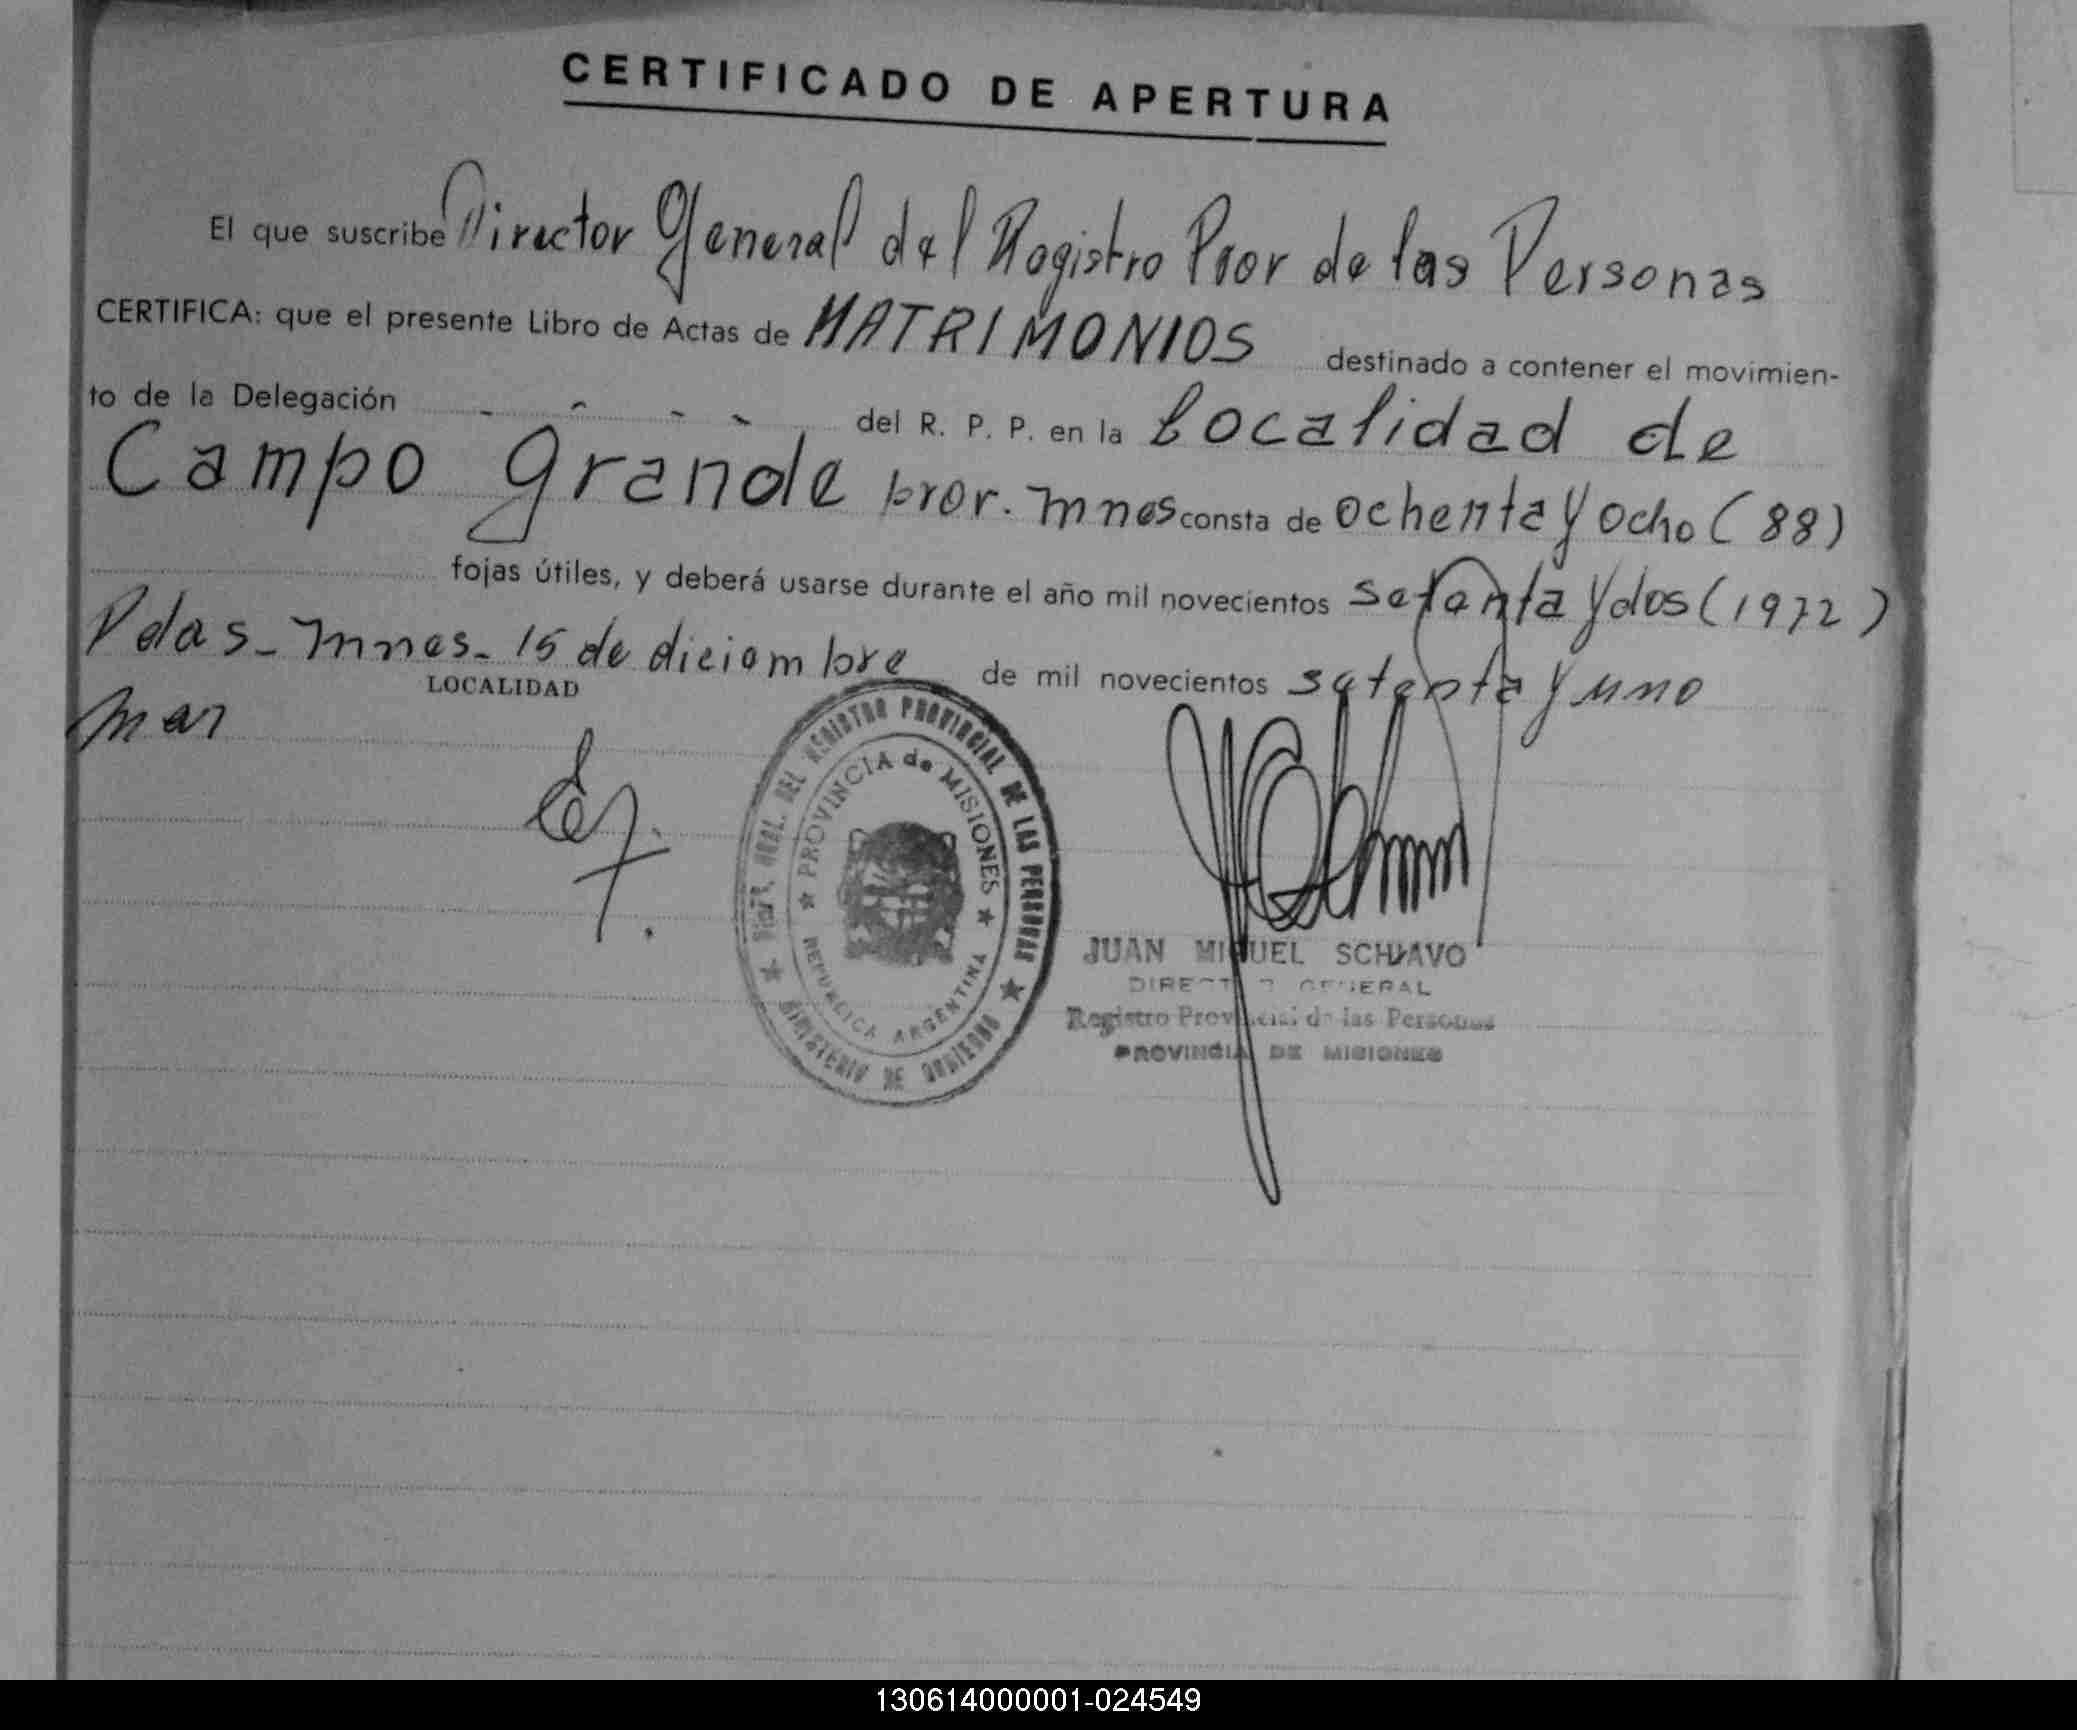 CERTIFICADO DE APERTURA
El que suscribe Director General del Registro Pror de las Personas
CERTIFICA: que el presente Libro de Actas de MATRIMONIOS destinado a contener el movimien-
to de la Delegación - - - - del R. P. P. en la Localidad de
Campo Grande pror. Mnes consta de ochenta y ocho (88)
fojas útiles, y deberá usarse durante el año mil novecientos setenta y dos (1972)
Pdas - Mnes - 15 de diciembre de mil novecientos setenta y uno
LOCALIDAD
mar
GRAL. DEL REGISTRO PROVINCIAL DE LAS PERSONAS
★ MINISTERIO DE GOBIERNO ★
PROVINCIA de MISIONES
★ REPUBLICA ARGENTINA ★
JUAN MIGUEL SCHIAVO
DIRECTOR GENERAL
Registro Provincial de las Personas
PROVINCIA DE MISIONES
130614000001-024549